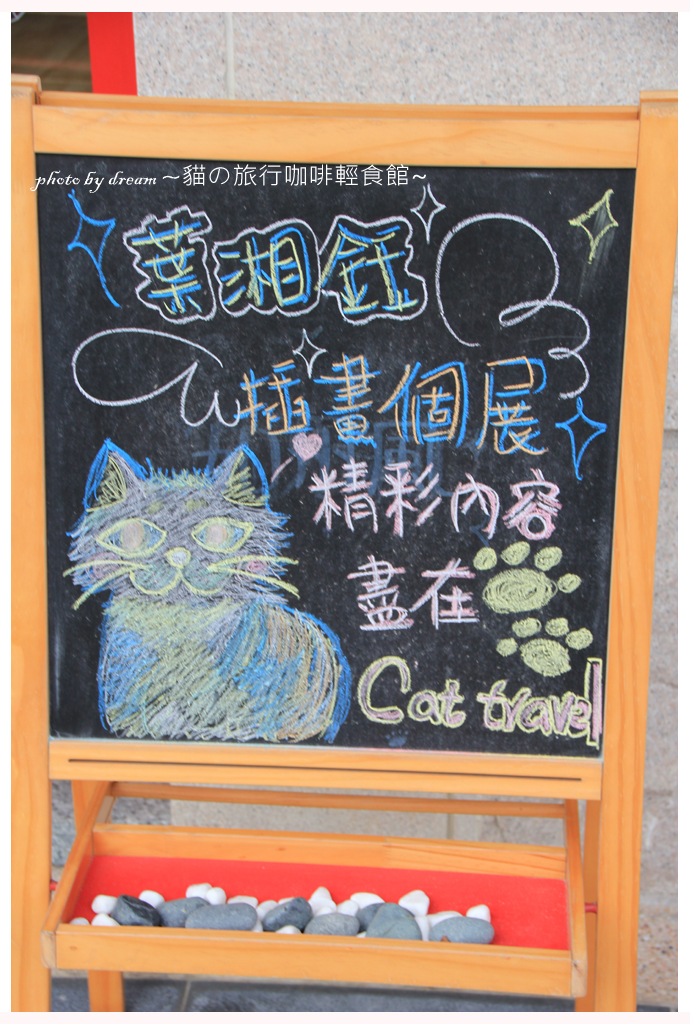 photo by dream ~貓の旅行咖啡輕食館~
葉湘鈺
插畫個展
精彩內容
盡在
Cat travel